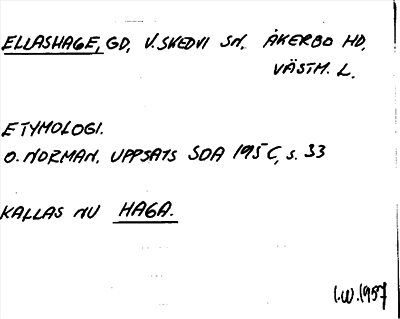 ELLASHAGE, GD, V. SKEDVI SN. ÅKERBO HD,
VÄSTM. L.
ETYMOLOGI.
O. NORMAN, UPPSATS SOA 195C, s. 33
KALLAS NU HAGA.
I.W. 1957